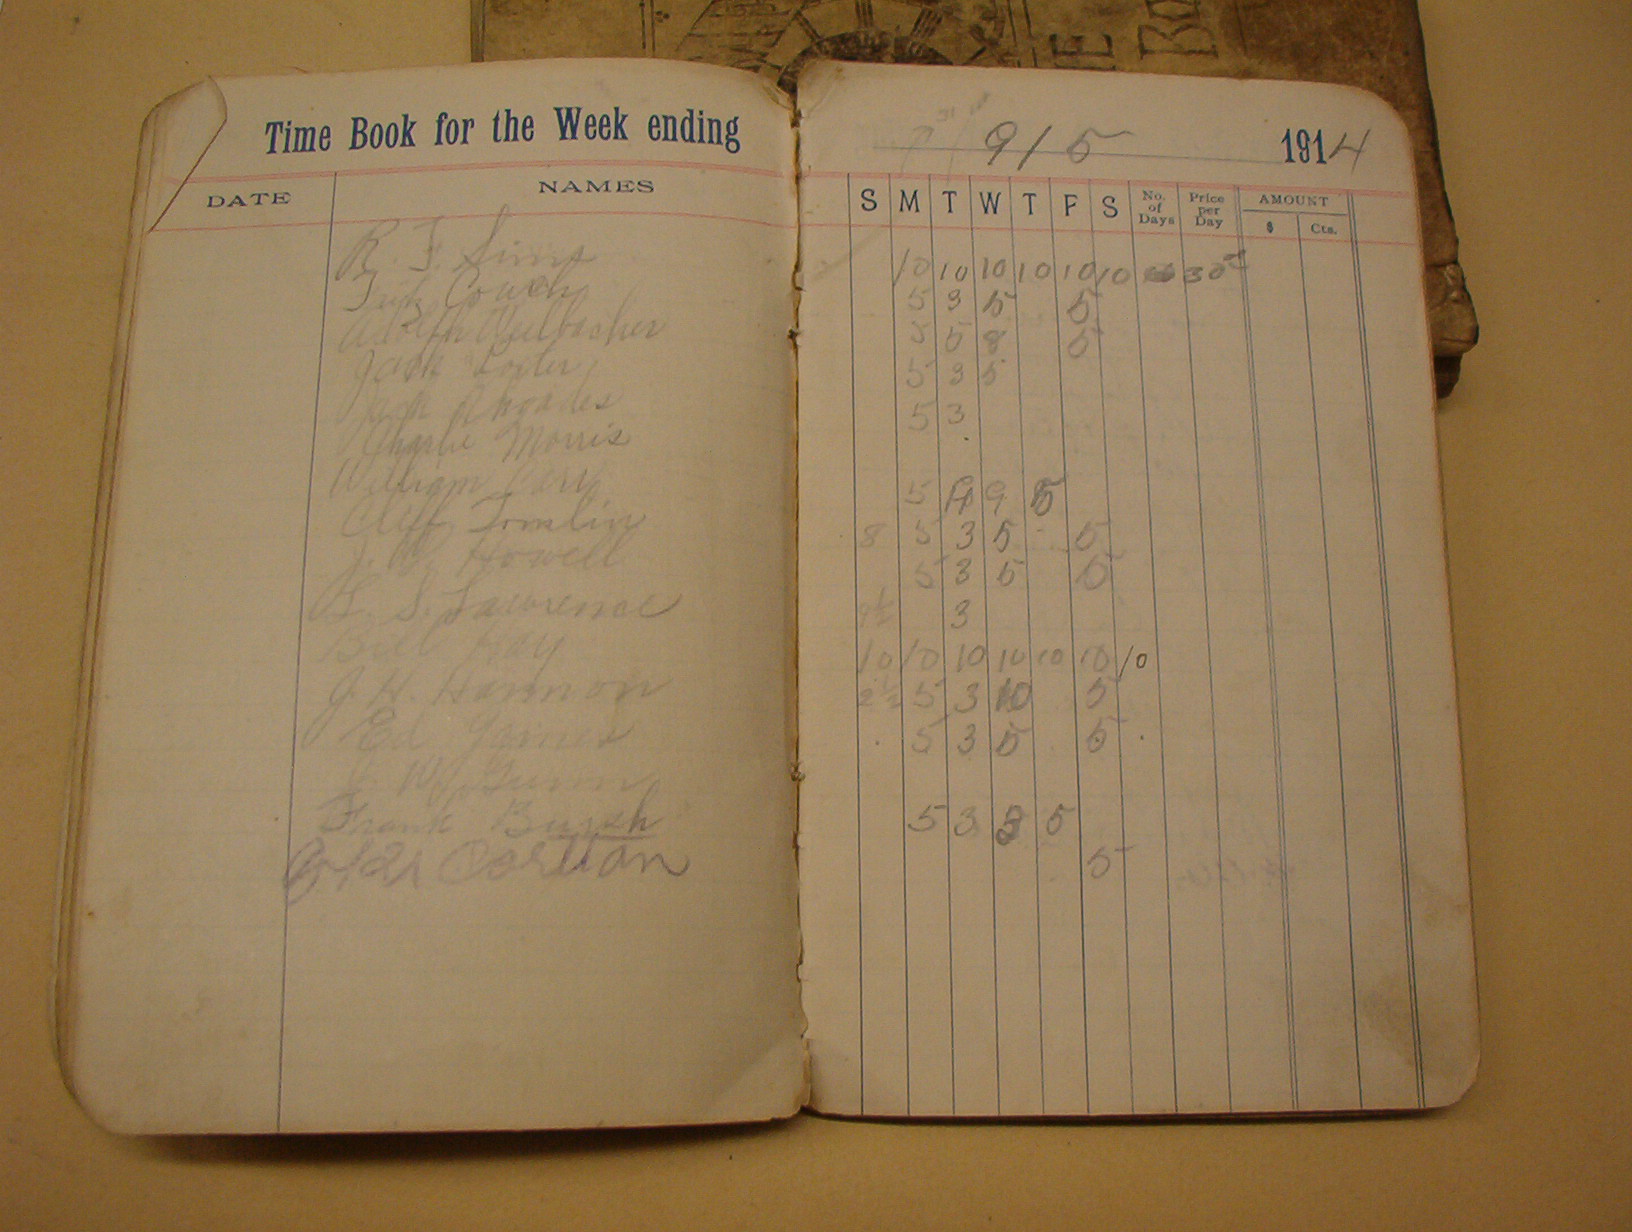 E
Bo
Time Book for the Week ending 9/5 1914
DATE NAMES S M T W T F S No. of Days Price per Day AMOUNT $ Cts.
R. F. Sims 10 10 10 10 10 10 30
Couch 5 3 5 5
5 5 8 5
Jack 5 3 5
Jack Rhoades 5 3
Charlie Morris
William Carr 5 4 9 5
Cliff Tomlin 8 5 3 5 5
J. Howell 5 3 5 5
S. Lawrence 3
Bill Kay 10 10 10 10 10 10 10
J. H. Harmon 2½ 5 3 10 5
Ed Gaines 5 3 5 5
W. Gunn
Frank Bursh 5 3 3 5
5